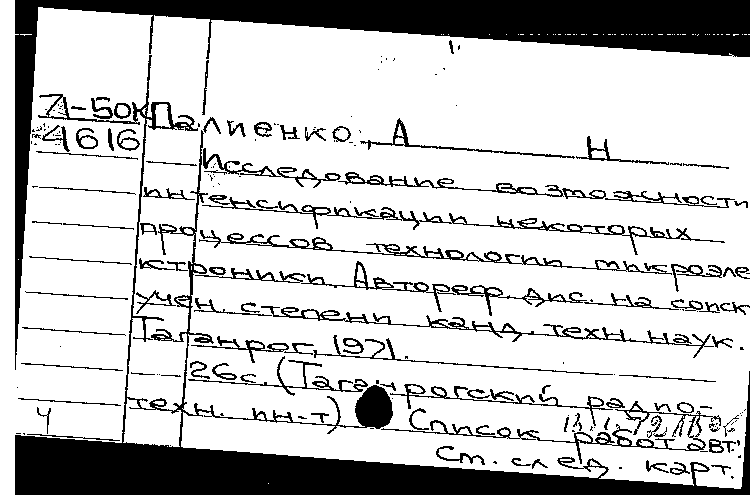 71-50К
4616
Палиенко, А Н
Исследование возможности
интенсификации некоторых
процессов технологии микроэле
ктроники. Автореф. дис. на соиск
учен. степени канд. техн. наук.
Таганрог, 1971.
26с. (Таганрогский радио-
техн. ин-т) Список работ авт.
См. след. карт.
Ч